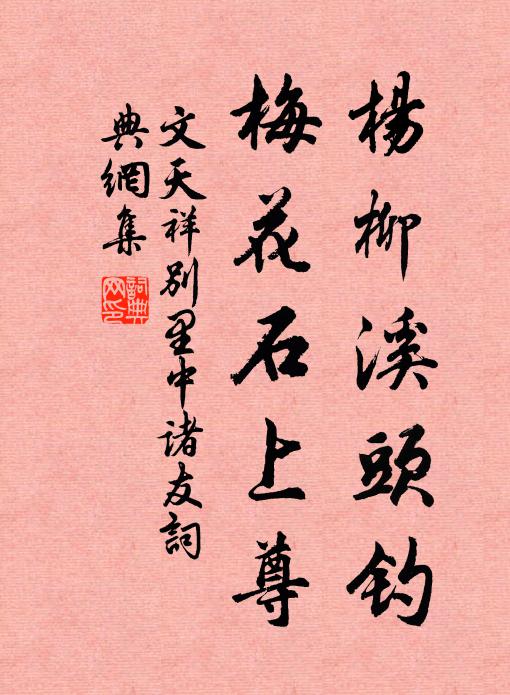 楊柳溪頭釣
梅花石上尊
文天祥別里中諸友詞
典網集
詞典網印